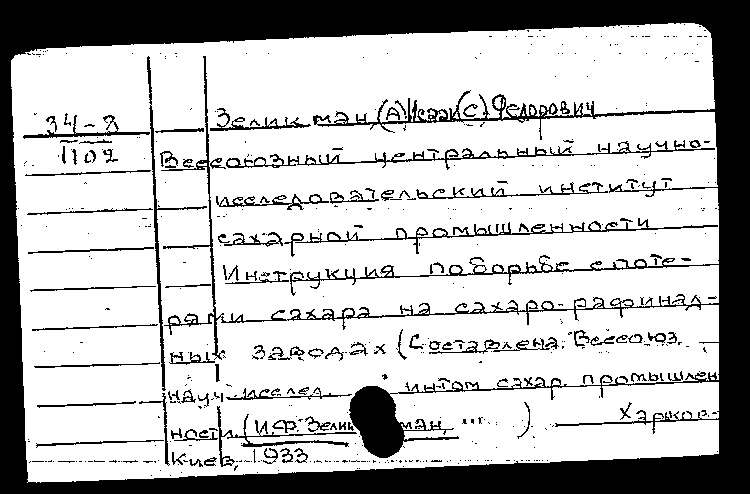 34-8
1102
Зеликман, (А) Исаак (С). Федорович
Всесоюзный центральный научно-
исследовательский институт
сахарной промышленности
Инструкция по борьбе с поте-
рями сахара на сахаро-рафинад-
ных заводах (Составлена: Всесоюз.
науч.-исслед. интом сахар. промышлен
ности. (И.Ф. Зеликман, ... ) Харков-
Киев, 1933